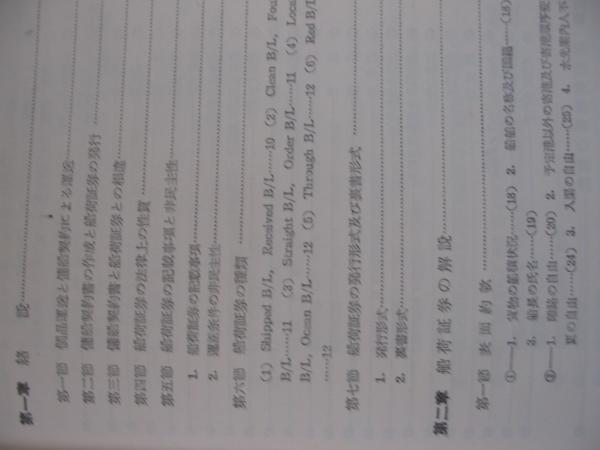 第一章 総説
第一節 個品運送と傭船契約による運送
第二節 傭船契約書の作成と船荷証券の発行
第三節 傭船契約書と船荷証券との相違
第四節 船荷証券の法律上の性質
第五節 船荷証券の記載事項と非民主性
1. 船荷証券の記載事項
2. 運送条件の非民主性
第六節 船荷証券の種類
(1) Shipped B/L, Received B/L……10 (2) Clean B/L, Foul
B/L……11 (3) Straight B/L, Order B/L……11 (4) Local
B/L, Ocean B/L……12 (5) Through B/L……12 (6) Red B/L
……12
第七節 船荷証券の発行形式及び裏書形式
1. 発行形式
2. 裏書形式
第二章 船荷証券の解説
第一節 表面約款
①—1. 貨物の船積状況……(18) 2. 船舶の名称及び国籍……(18)
3. 船長の氏名……(19)
②—1. 離路の自由……(20) 2. 予定港以外の寄港及び寄港順序変
更の自由……(24) 3. 入渠の自由……(25) 4. 水先案内人不